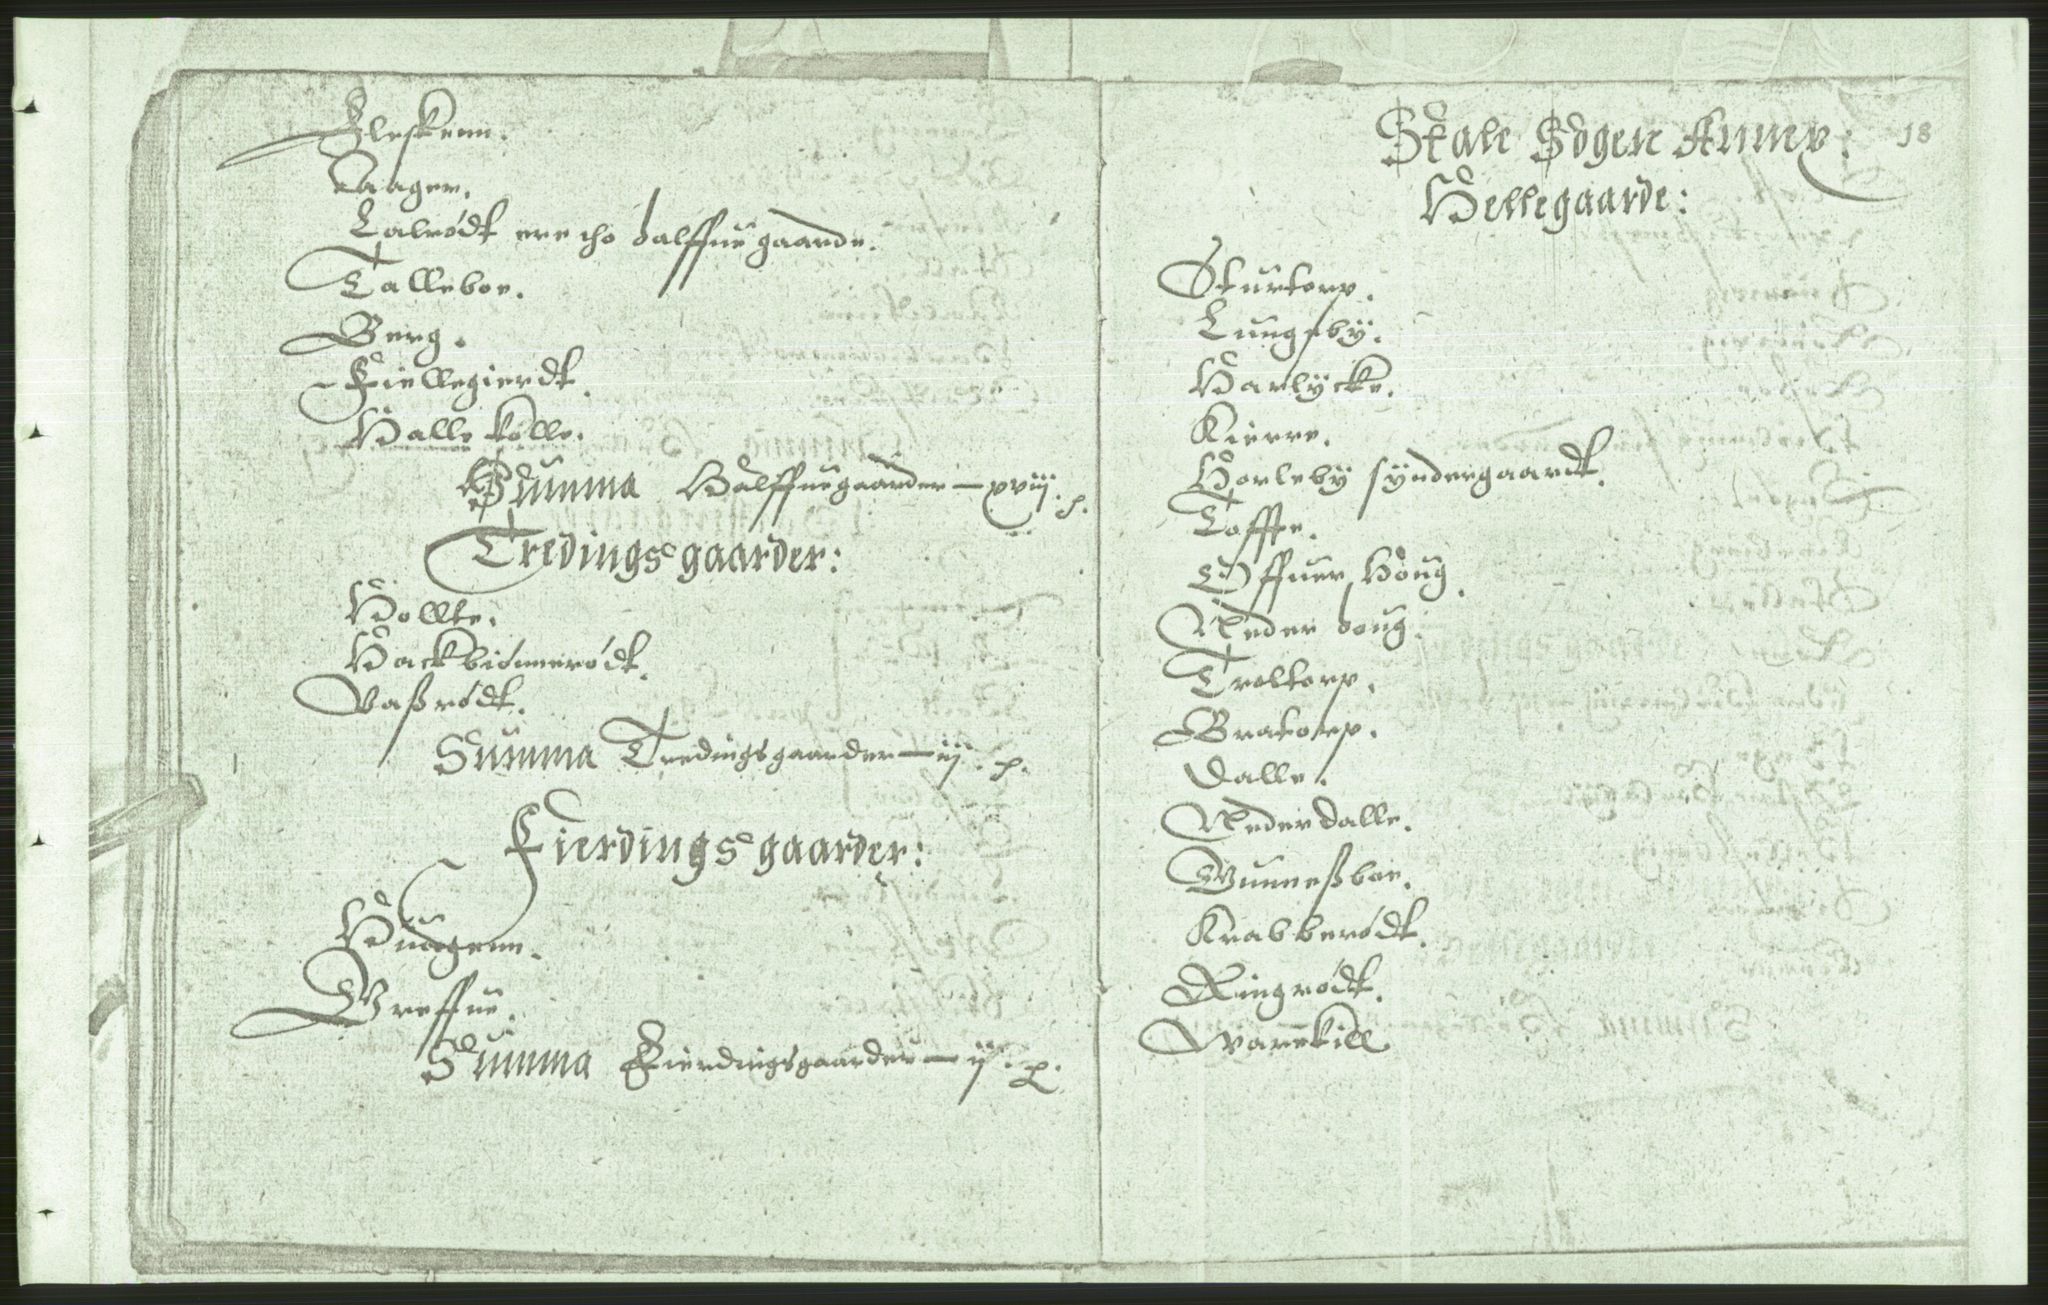 Fleskenn.
Aager.
Lalrødt ere tho halffue gaarde.
Talleboe.
Berg.
Fiellegierdt.
Halle kolle.
Summa Halffuegaarder — xviij. p.
Tredings gaarder:
Hollte.
Hackbiönnerødt.
Vaßrødt.
Summa Tredingsgaarder — iij. p.
Fierdings gaarder:
Hungenn.
Greffue.
Summa Fierdingsgaarder — ij. p.
Skale Sogen Anner: 18
Hellegaarde:
Sturtorp.
Lungsby.
Harlycke.
Kierre.
Horleby syndergaardt.
Toffte.
Offuer Houg.
Neder houg.
Troltorp.
Bratorp.
Dalle.
Nederdalle.
Gunneßboe.
Krabberødt.
Ringrødt.
Warekill